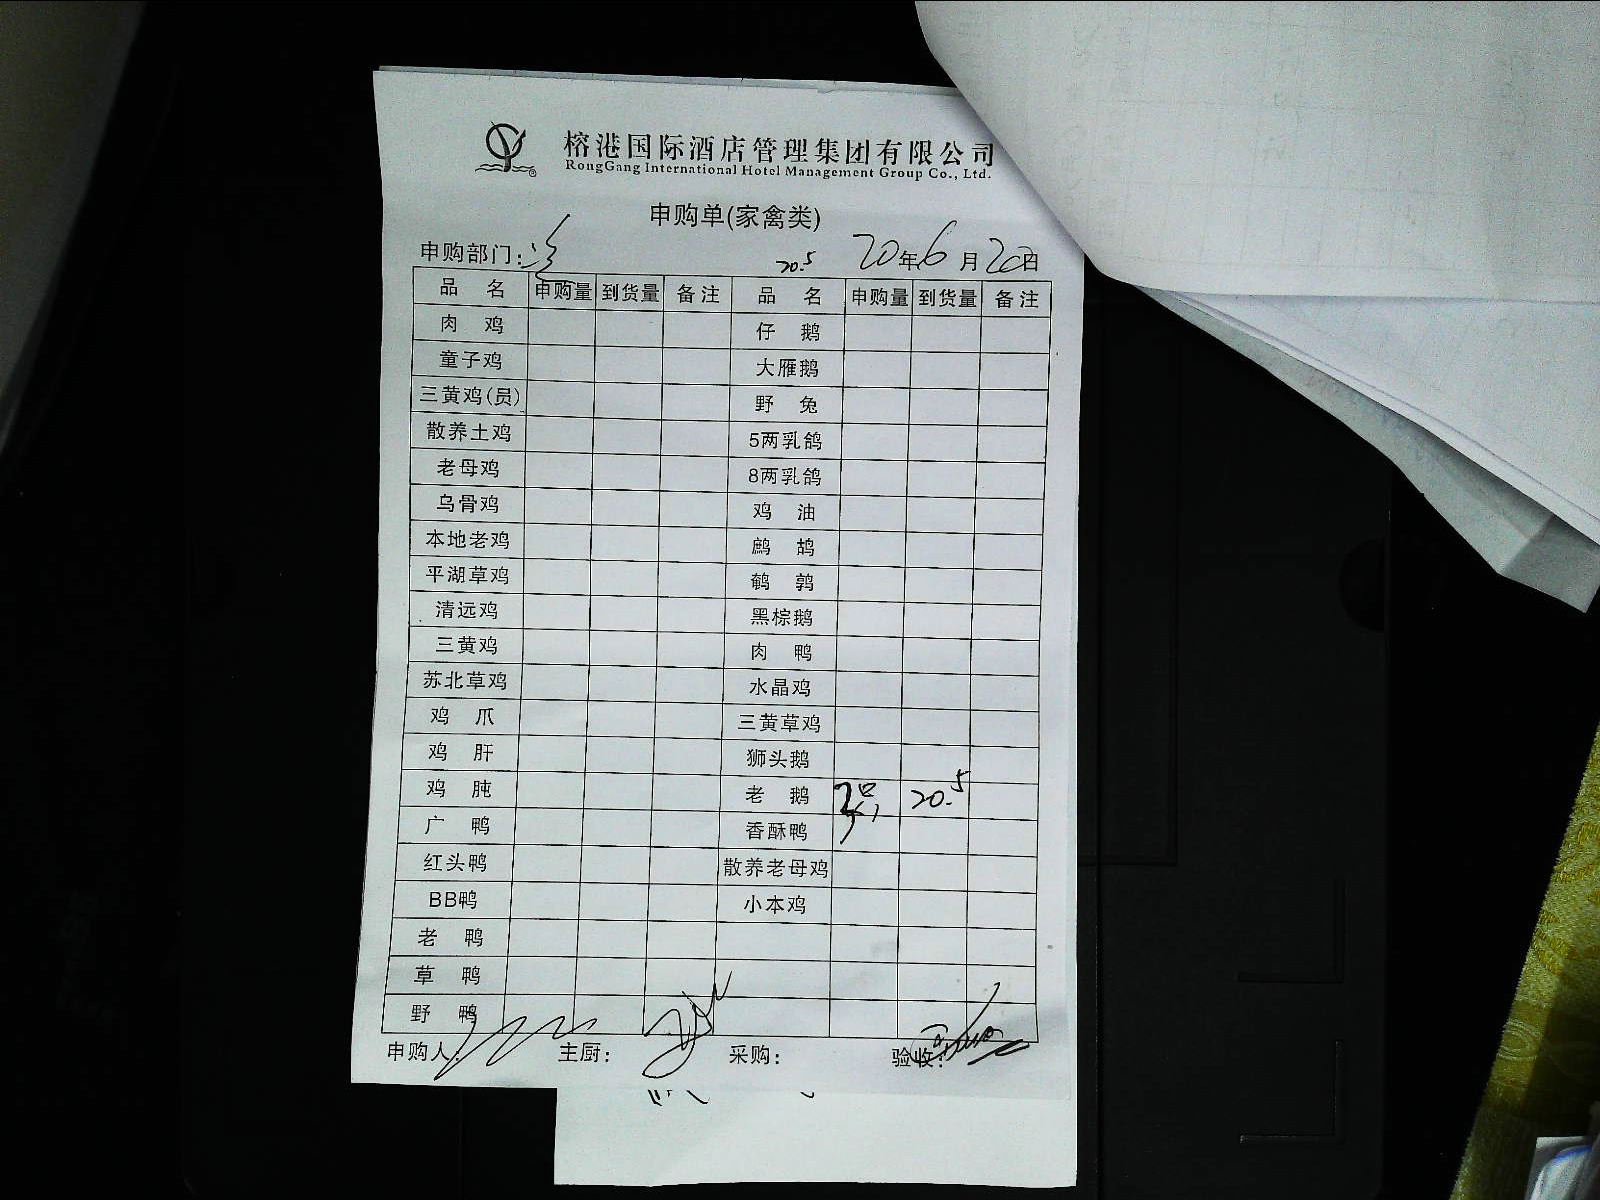 榕港国际酒店管理集团有限公司
RongGang International Hotel Management Group Co., Ltd.
申购单(家禽类)
申购部门: 20.5 20年6月20日
品 名 申购量 到货量 备注 品 名 申购量 到货量 备注
肉 鸡 仔 鹅
童子鸡 大雁鹅
三黄鸡(员) 野 兔
散养土鸡 5两乳鸽
老母鸡 8两乳鸽
乌骨鸡 鸡 油
本地老鸡 鹧 鸪
平湖草鸡 鹌 鹑
清远鸡 黑棕鹅
三黄鸡 肉 鸭
苏北草鸡 水晶鸡
鸡 爪 三黄草鸡
鸡 肝 狮头鹅
鸡 肫 老 鹅 20.5
广 鸭 香酥鸭
红头鸭 散养老母鸡
BB鸭 小本鸡
老 鸭
草 鸭
野 鸭
申购人: 主厨: 采购: 验收: